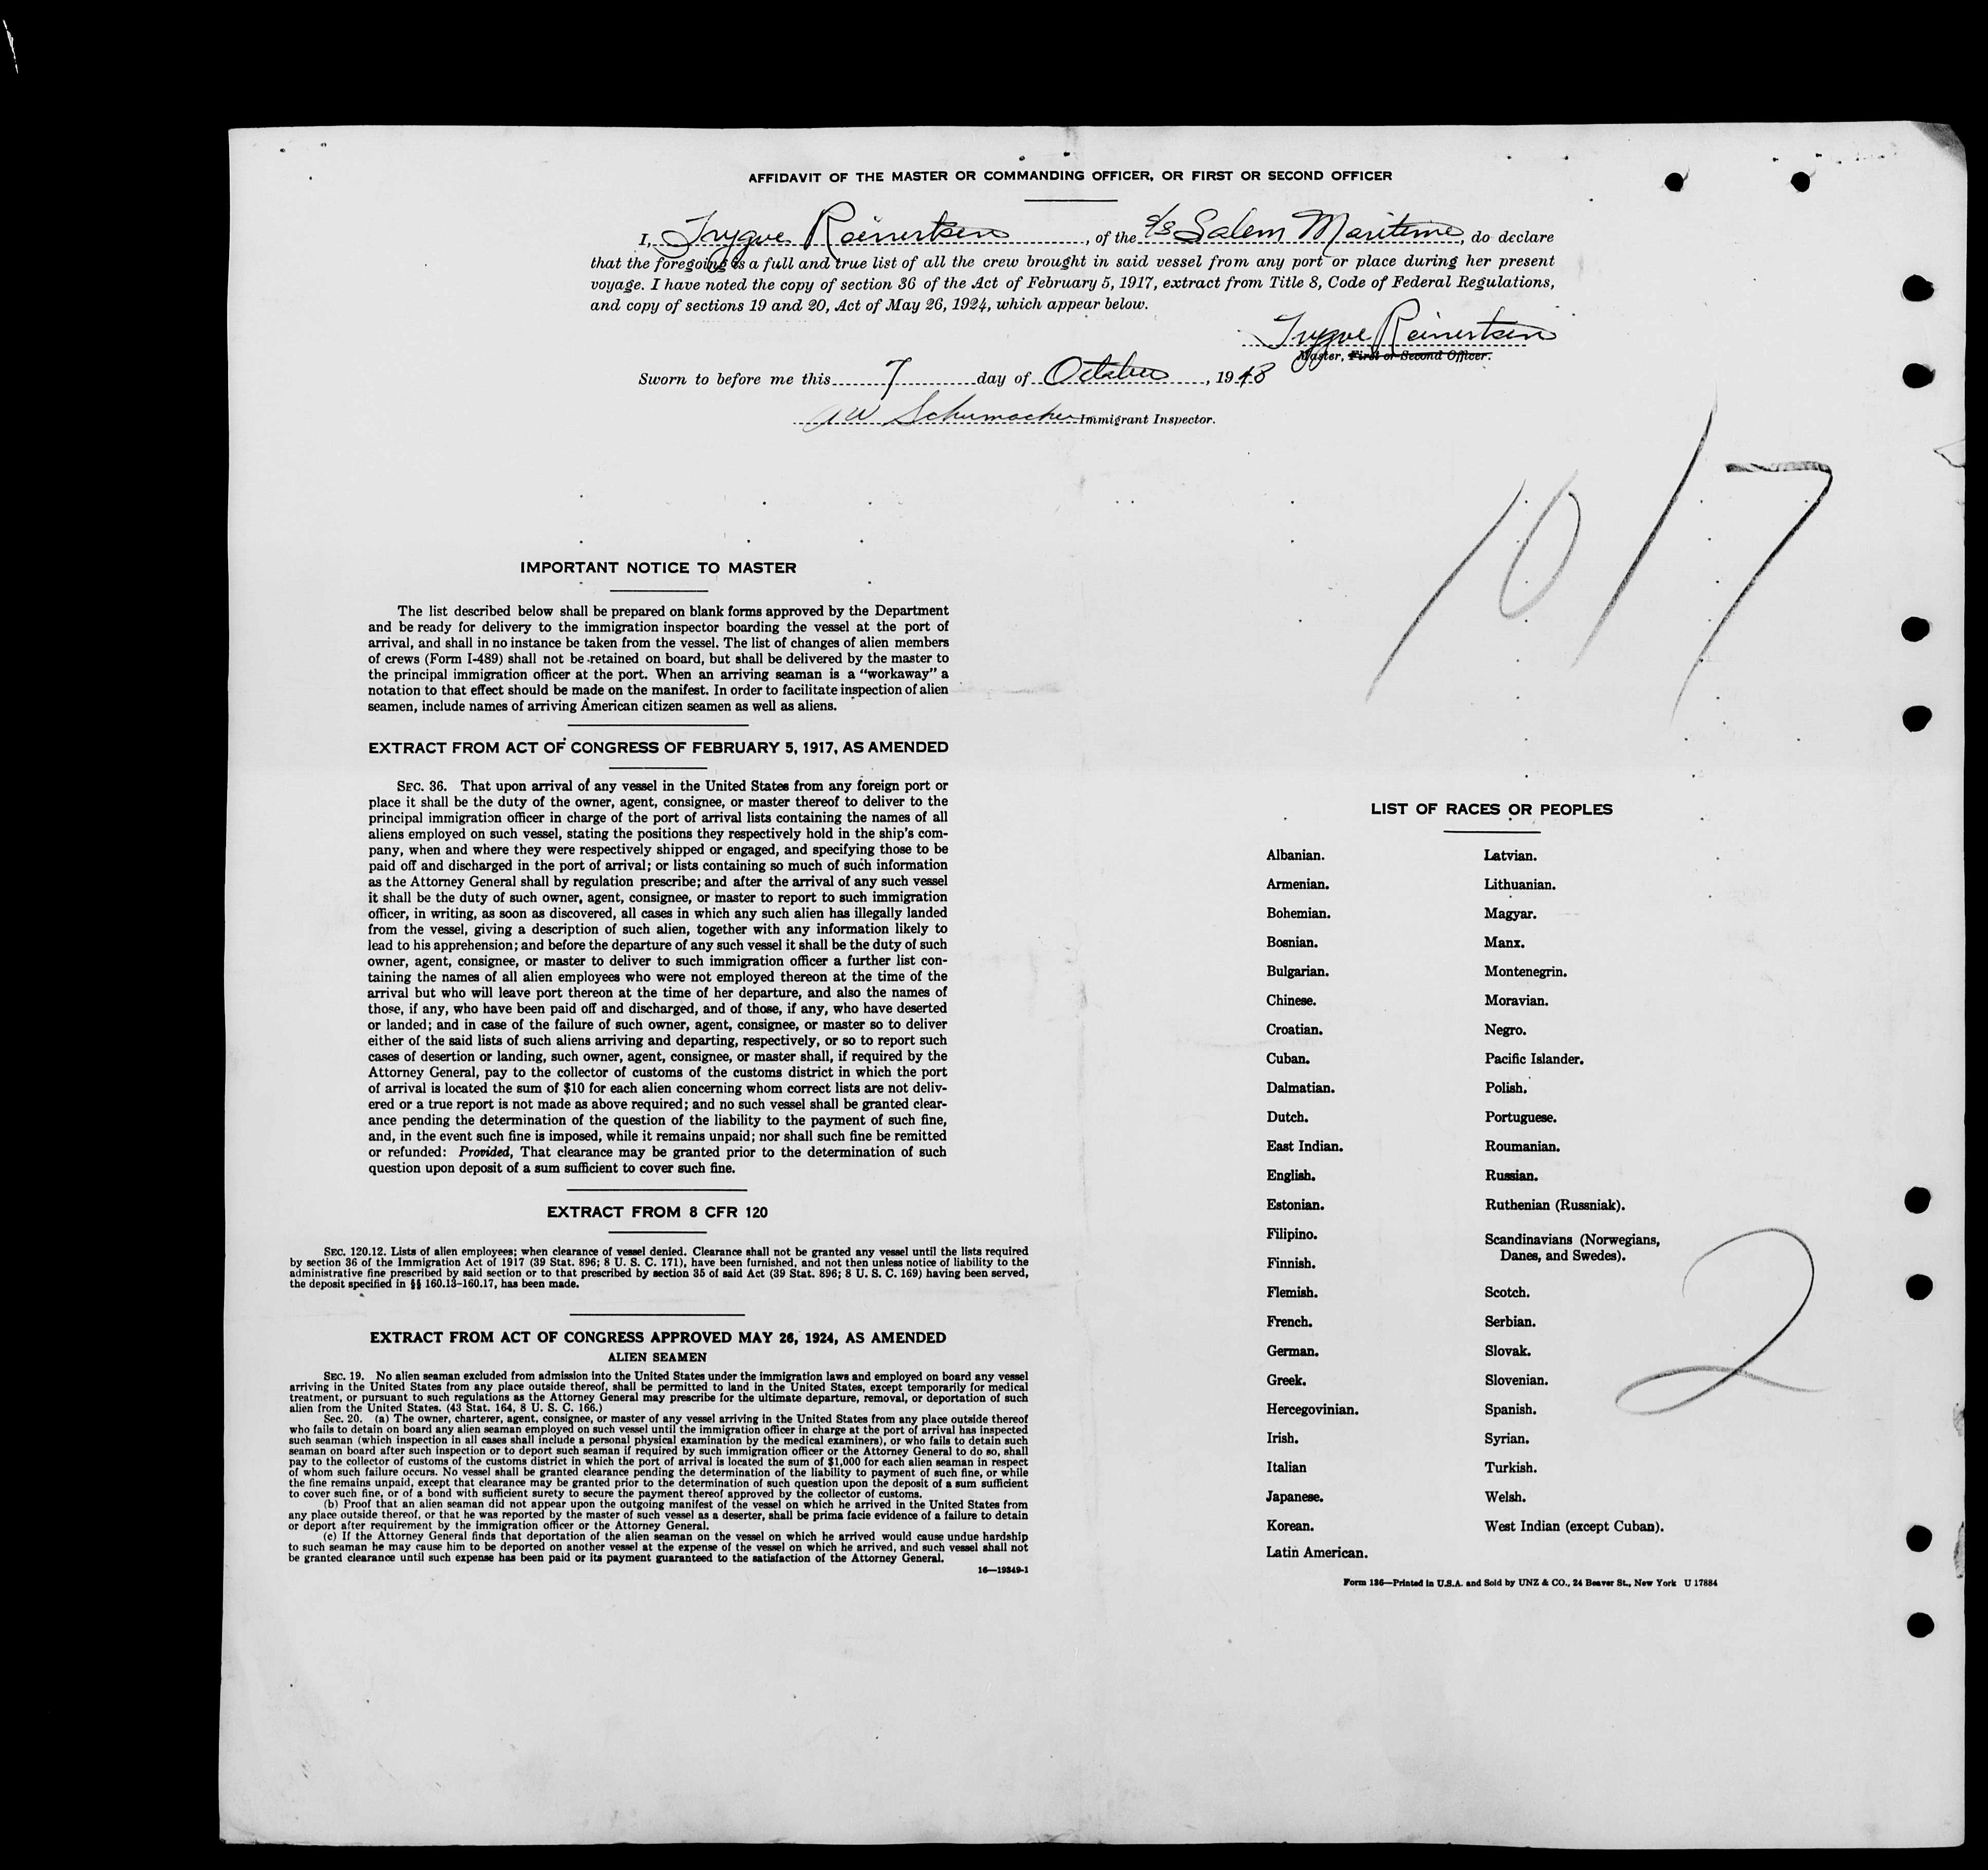 AFFIDAVIT OF THE MASTER OR COMMANDING OFFICER, OR FIRST OR SECOND OFFICER
I, Trygve Reinertsen, of the S/S Salem Maritime, do declare
that the foregoing is a full and true list of all the crew brought in said vessel from any port or place during her present
voyage. I have noted the copy of section 36 of the Act of February 5, 1917, extract from Title 8, Code of Federal Regulations,
and copy of sections 19 and 20, Act of May 26, 1924, which appear below.
Trygve Reinertsen
Master, First or Second Officer.
Sworn to before me this 7 day of October, 1948
AW Schumacher Immigrant Inspector.
1017
IMPORTANT NOTICE TO MASTER
The list described below shall be prepared on blank forms approved by the Department
and be ready for delivery to the immigration inspector boarding the vessel at the port of
arrival, and shall in no instance be taken from the vessel. The list of changes of alien members
of crews (Form I-489) shall not be retained on board, but shall be delivered by the master to
the principal immigration officer at the port. When an arriving seaman is a "workaway" a
notation to that effect should be made on the manifest. In order to facilitate inspection of alien
seamen, include names of arriving American citizen seamen as well as aliens.
EXTRACT FROM ACT OF CONGRESS OF FEBRUARY 5, 1917, AS AMENDED
SEC. 36. That upon arrival of any vessel in the United States from any foreign port or
place it shall be the duty of the owner, agent, consignee, or master thereof to deliver to the
principal immigration officer in charge of the port of arrival lists containing the names of all
aliens employed on such vessel, stating the positions they respectively hold in the ship's com-
pany, when and where they were respectively shipped or engaged, and specifying those to be
paid off and discharged in the port of arrival; or lists containing so much of such information
as the Attorney General shall by regulation prescribe; and after the arrival of any such vessel
it shall be the duty of such owner, agent, consignee, or master to report to such immigration
officer, in writing, as soon as discovered, all cases in which any such alien has illegally landed
from the vessel, giving a description of such alien, together with any information likely to
lead to his apprehension; and before the departure of any such vessel it shall be the duty of such
owner, agent, consignee, or master to deliver to such immigration officer a further list con-
taining the names of all alien employees who were not employed thereon at the time of the
arrival but who will leave port thereon at the time of her departure, and also the names of
those, if any, who have been paid off and discharged, and of those, if any, who have deserted
or landed; and in case of the failure of such owner, agent, consignee, or master so to deliver
either of the said lists of such aliens arriving and departing, respectively, or so to report such
cases of desertion or landing, such owner, agent, consignee, or master shall, if required by the
Attorney General, pay to the collector of customs of the customs district in which the port
of arrival is located the sum of $10 for each alien concerning whom correct lists are not deliv-
ered or a true report is not made as above required; and no such vessel shall be granted clear-
ance pending the determination of the question of the liability to the payment of such fine,
and, in the event such fine is imposed, while it remains unpaid; nor shall such fine be remitted
or refunded: Provided, That clearance may be granted prior to the determination of such
question upon deposit of a sum sufficient to cover such fine.
EXTRACT FROM 8 CFR 120
SEC. 120.12. Lists of alien employees; when clearance of vessel denied. Clearance shall not be granted any vessel until the lists required
by section 36 of the Immigration Act of 1917 (39 Stat. 896; 8 U. S. C. 171), have been furnished, and not then unless notice of liability to the
administrative fine prescribed by said section or to that prescribed by section 35 of said Act (39 Stat. 896; 8 U. S. C. 169) having been served,
the deposit specified in §§ 160.13-160.17, has been made.
EXTRACT FROM ACT OF CONGRESS APPROVED MAY 26, 1924, AS AMENDED
ALIEN SEAMEN
SEC. 19. No alien seaman excluded from admission into the United States under the immigration laws and employed on board any vessel
arriving in the United States from any place outside thereof, shall be permitted to land in the United States, except temporarily for medical
treatment, or pursuant to such regulations as the Attorney General may prescribe for the ultimate departure, removal, or deportation of such
alien from the United States. (43 Stat. 164, 8 U. S. C. 166.)
Sec. 20. (a) The owner, charterer, agent, consignee, or master of any vessel arriving in the United States from any place outside thereof
who fails to detain on board any alien seaman employed on such vessel until the immigration officer in charge at the port of arrival has inspected
such seaman (which inspection in all cases shall include a personal physical examination by the medical examiners), or who fails to detain such
seaman on board after such inspection or to deport such seaman if required by such immigration officer or the Attorney General to do so, shall
pay to the collector of customs of the customs district in which the port of arrival is located the sum of $1,000 for each alien seaman in respect
of whom such failure occurs. No vessel shall be granted clearance pending the determination of the liability to payment of such fine, or while
the fine remains unpaid, except that clearance may be granted prior to the determination of such question upon the deposit of a sum sufficient
to cover such fine, or of a bond with sufficient surety to secure the payment thereof approved by the collector of customs.
(b) Proof that an alien seaman did not appear upon the outgoing manifest of the vessel on which he arrived in the United States from
any place outside thereof, or that he was reported by the master of such vessel as a deserter, shall be prima facie evidence of a failure to detain
or deport after requirement by the immigration officer or the Attorney General.
(c) If the Attorney General finds that deportation of the alien seaman on the vessel on which he arrived would cause undue hardship
to such seaman he may cause him to be deported on another vessel at the expense of the vessel on which he arrived, and such vessel shall not
be granted clearance until such expense has been paid or its payment guaranteed to the satisfaction of the Attorney General.
16—19849-1
LIST OF RACES OR PEOPLES
Albanian.
Armenian.
Bohemian.
Bosnian.
Bulgarian.
Chinese.
Croatian.
Cuban.
Dalmatian.
Dutch.
East Indian.
English.
Estonian.
Filipino.
Finnish.
Flemish.
French.
German.
Greek.
Hercegovinian.
Irish.
Italian
Japanese.
Korean.
Latin American.
Latvian.
Lithuanian.
Magyar.
Manx.
Montenegrin.
Moravian.
Negro.
Pacific Islander.
Polish.
Portuguese.
Roumanian.
Russian.
Ruthenian (Russniak).
Scandinavians (Norwegians,
Danes, and Swedes).
Scotch.
Serbian.
Slovak.
Slovenian.
Spanish.
Syrian.
Turkish.
Welsh.
West Indian (except Cuban).
2
Form 136—Printed in U.S.A. and Sold by UNZ & CO., 24 Beaver St., New York U 17884